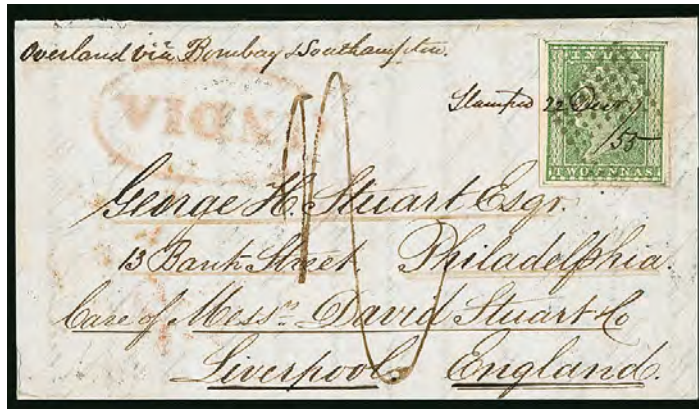 Overland via Bombay & Southampton.
INDIA
Stamped 22
/55
INDIA
TWO ANNAS
George H. Stuart Esqr.
13 Bank Street. Philadelphia.
Care of Messrs. David Stuart & Co
Liverpool. England.